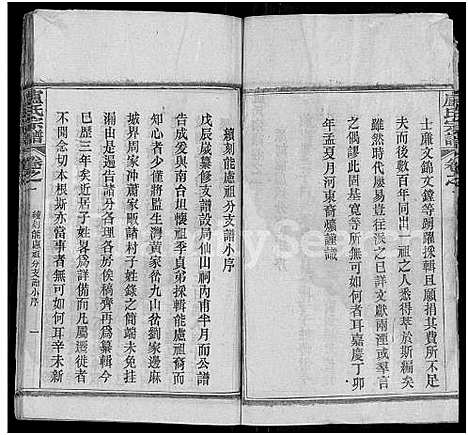 士廉文錦文鐘等踴躍採輯且願捐其費所不足
夫而後數百年同出一祖之人悉得萃於斯編矣
雖然時代屢易豈遂無遺忘之已詳文獻兩湮或舉言
之偶謬此固基寬等所無可如何者耳嘉慶丁卯
年孟夏月河東裔爌謹識
盧氏宗譜
卷之一
續刻能盧祖分支譜小序
戊辰歲纂修支譜設局仙山祠丙甫半月而公譜
告成爰與南台坦懐祖季貞弟採輯能盧祖裔而
知心者少僅將監生灣黃家岔九山岔劉家邊麻
城界周家冲蕭家畈諸村子姓錄之簡端未免挂
漏由是遍告諸分各理各房俟稿齊再為纂輯今
已歷三年矣近居子姓畧為詳備而凡屬遷徙者
不聞念切本根斯亦當事者無可如何耳辛未新
盧氏宗譜
卷之一
續刻能盧祖分支譜小序
一